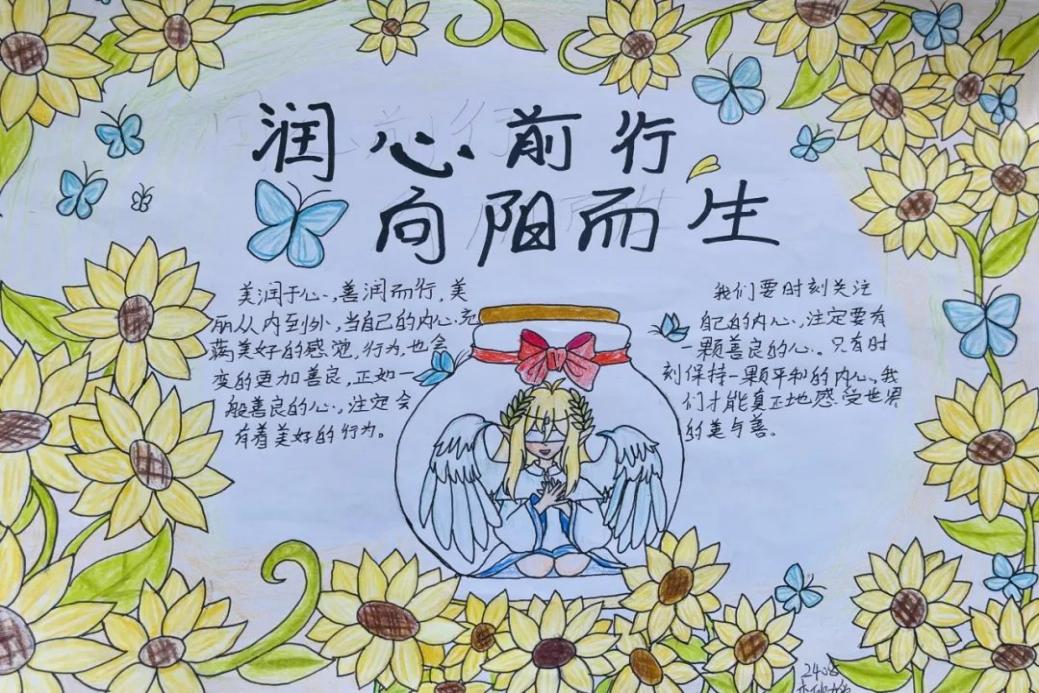 润心前行
向阳而生
美润于心,善润而行,美
丽从内到外,当自己的内心充
满美好的感觉,行为,也会
变的更加善良,正如一
般善良的心,注定会
有着美好的行为。
我们要时刻关注
自己的内心,注定要有
一颗善良的心。只有时
刻保持一颗平和的内心,我
们才能真正地感受世界
的美与善。